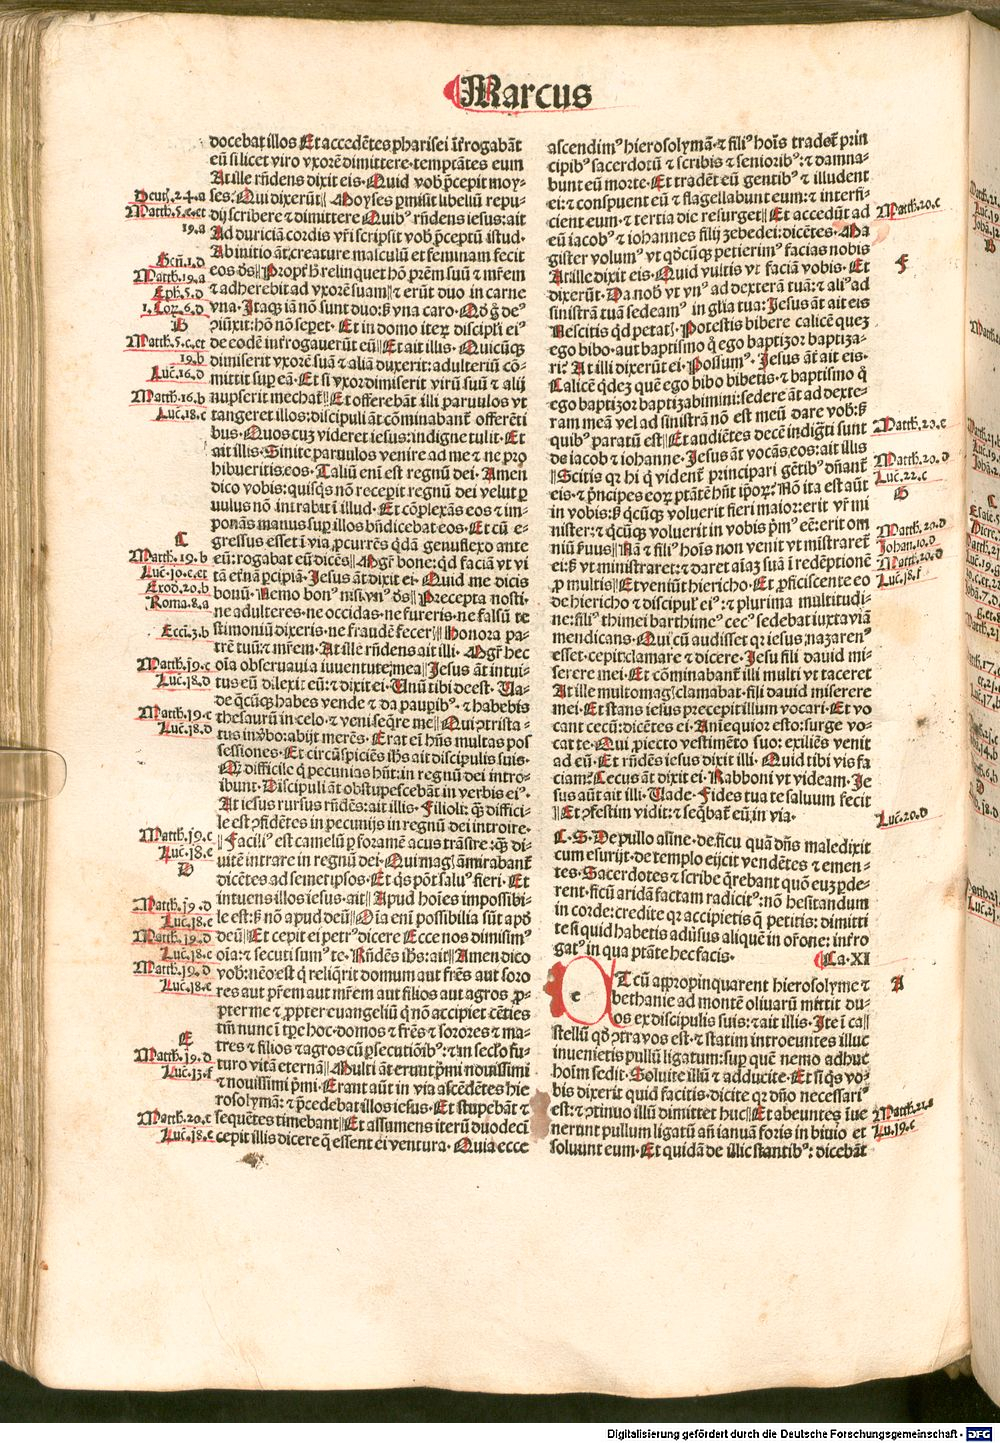 Marcus
docebat illos Et accedẽtes pharisei ĩtrogabãt
eũ si licet viro vxorẽ dimittere·temptãtes eum
At ille rñdens dixit eis·Quid vob̉ p̃cepit moy-
ses: Qui dixerũt|| Moyses p̱misit libellũ repu-
dij scribere ⁊ dimittere Quibꝰ rñdens iesus:ait
Ad duriciam cordis vr̃i scripsit vob̉ p̃ceptũ istud·
Ab initio aũt creature masculũ et feminam fecit
eos dš|| Propt̉ h̉ relinquet hõ pr̃em suũ ⁊ mr̃em
⁊ adherebit ad vxorẽ suam|| ⁊ erũt duo in carne
vna·Itaqꝫ iã nõ sunt duo:sꝫ vna caro·Qd̉ g̊ de⁹
ꝯiũxit:hõ nõ sep̱et·Et in domo iteꝝ discipl̉i ei⁹
de eodẽ int̉rogauerũt eũ|| Et ait illis·Quicũqꝫ
dimiserit vxorẽ suã ⁊ aliã duxerit:adulteriũ cõ-
mittit sup̱ eã·Et si vxor dimiserit virũ suũ ⁊ alij
nupserit mechat̉|| Et offerebãt illi paruulos vt
tangeret illos:discipuli aũt cõminabant̉ offerẽti
bus·Quos cuꝫ videret iesus:indigne tulit·Et
ait illis·Sinite paruulos venire ad me ⁊ ne pro
hibueritis eos·Taliũ eni est regnũ dei·Amen
dico vobis:quisqs nõ recep̱it regnũ dei velut p̱
uulus nõ intrabit ĩ illud·Et cõplexãs eos ⁊ im-
ponãs manus sup̱ illos bñdicebat eos·Et cũ e-
gressus esset ĩ via ꝓcurrẽs qdã genuflexo ante
eũ:rogabat eũ dicẽs|| Mgr̃ bone:qd faciã vt vi
tã et̉nã p̱cipiã·Jesus ãt dixit ei·Quid me dicis
bonũ·Nemo bon⁹ nisi vn⁹ dš||Precepta nosti·
ne adulteres·ne occidas·ne fureris·ne falsũ te
stimoniũ dixeris·ne fraudẽ fecer̉||Honora pa-
trẽ tuũ:⁊ mr̃em·At ille rñdens ait illi·Mgr̃ hec
oĩa obseruaui a iuuentute mea||Jesus ãt intui-
tus eũ dilexit eũ:⁊ dixit ei·Unũ tibi deest·Ua-
de qcũqꝫ habes vende ⁊ da paup̱ibꝰ·⁊ habebis
thesaurũ in celo:⁊ veni seqre me||Qui ꝯtrista-
tus in v̉bo:abijt merẽs·Erat eni hñs multas pos
sessiones·Et circũspiciẽs ih̃s ait discipulis suis·
Qꝫ difficile q pecunias hñt:in regnũ dei intro-
ibunt·Discipuli ãt obstupescebãt in verbis ei⁹·
At iesus rursus rñdẽs:ait illis·Filioli:qꝫ diffici-
le est ꝯfidẽtes in pecunijs in regnũ dei introire·
||Facili⁹ est camelũ p̱ foramẽ acus trãsire:qꝫ di-
uitẽ intrare in regnũ dei·Qui magꝭ ãmirabant̉
dicẽtes ad semetip̃sos·Et qs põt salu⁹ fieri·Et
intuens illos iesus·ait||Apud hoĩes impossibi-
le est:sꝫ nõ apud deũ||Oĩa eni possibilia sũt apd̉
deũ||Et cepit ei petr⁹ dicere Ecce nos dimisim⁹
oĩa:⁊ secuti sum⁹ te·Rñdẽs ih̃s:ait||Amen dico
vob̉:nẽo est q reliq̃rit domum aut fr̃es aut soro
res aut pr̃em aut mr̃em aut filios aut agros ꝓ-
pter me ⁊ ꝓpter euangeliũ q nõ accipiet cẽties
tm̃ nunc ĩ tp̃e hoc·domos ⁊ fr̃es ⁊ sorores ⁊ ma-
tres ⁊ filios ⁊ agros cũ p̱secutiõib⁹:⁊ in sec̃lo fu-
turo vitã eternã||Multi ãt erunt pmi nouissimi
⁊ nouissimi pmi·Erant aũt in via ascẽdẽtes hie
rosolymã:⁊ p̃cedebat illos iesus·Et stupebãt ⁊
sequẽtes timebant||Et assumens iterũ duodeci
cepit illis dicere q essent ei ventura·Quia ecce
Deut̉.24.a
Matth.5.c.et
19.a
Geñ.1.d
Matth.19.a
Eph̉.5.d
1.Coꝝ.6.d
B
Matth.5.c.et
19.b
Luc̃.16.d
Matth.16.b
Luc̃.18.c
C
Matth.19.b
Luc̃.10.e.et
Exod.20.b
Roma.8.a
Ecci.3.b
Matth.19.c
Luc̃.18.d
Matth.19.c
Luc̃.18.d
Matth.19.c
Luc̃.18.e
D
Matth.19.d
Luc̃.18.e
Matth.19.d
Luc̃.18.e
Matth.19.d
Luc̃.18.e
E
Matth.19.d
Luc̃.13.f
Matth.20.c
Luc̃.18.e
ascendim⁹ hierosolymã·⁊ fili⁹ hoĩs tradet̉ prin
cipib⁹ sacerdotũ ⁊ scribis ⁊ seniorib⁹:⁊ damna-
bunt eũ morte·Et tradẽt eũ gentib⁹ ⁊ illudent
ei:⁊ conspuent eũ ⁊ flagellabunt eum:⁊ interfi-
cient eum·⁊ tertia die resurget||Et accedũt ad
eũ iacob⁹ ⁊ iohannes filij zebedei:dicẽtes·Ma
gister volum⁹ vt qd̉cũqꝫ petierim⁹ facias nobis
At ille dixit eis·Quid vultis vt faciã vobis·Et
dixerũt·Da nob̉ vt vn⁹ ad dexterã tuã:⁊ ali⁹ ad
sinistrã tuã sedeam⁹ in gl̃ia tua:Jesus ãt ait eis
Nescitis qd petatꝭ·Potestis bibere calicẽ queꝫ
ego bibo·aut baptismo q ego baptizor baptiza-
ri: At illi dixerũt ei·Possum⁹·Jesus ãt ait eis·
Calicẽ qdẽ queꝫ ego bibo bibetis·⁊ baptismo q
ego baptizor baptizabimini:sedere ãt ad dexte-
ram meã vel ad sinistrã nõ est meũ dare vob̉:sꝫ
quib⁹ paratũ est||Et audiẽtes decẽ indig̃ti sunt
de iacob ⁊ iohanne·Jesus ãt vocãs eos:ait illis
||Scitis qꝛ hi q vident̉ principari gẽtib⁹ dñant̉
eis·⁊ p̃ncipes eoꝝ ptãtẽ hñt ip̃oꝝ: Nõ ita est aũt
in vobis:sꝫ qcũqꝫ voluerit fieri maior:erit vr̃ mi
nister:⁊ qcũqꝫ voluerit in vobis pm⁹ eẽ:erit om
niũ ẜuus||Nã ⁊ fili⁹ hoĩs non venit vt mĩstraret̉
ei:sꝫ vt ministraret:⁊ daret aĩaꝫ suã ĩ redẽptionẽ
ꝓ multis||Et veniũt hiericho·Et ꝓficiscente eo
de hiericho ⁊ discipul̉ ei⁹:⁊ plurima multitudi-
ne:fili⁹ thimei barthime⁹ cec⁹ sedebat iuxta viã
mendicans·Qui cũ audisset qꝛ iesus nazaren⁹
esset·cepit clamare ⁊ dicere·Jesu fili dauid mi-
serere mei·Et cõminabant̉ illi multi vt taceret
At ille multomagꝭ clamabat·fili dauid miserere
mei·Et stans iesus precepit illum vocari·Et vo
cant cecũ:dicẽtes ei·Anieqior esto:surge vo-
cat te·Qui ꝓiecto vestimẽto suo:exiliẽs venit
ad eũ·Et rñdẽs iesus dixit illi·Quid tibi vis fa
ciam: Cecus ãt dixit ei·Rabboni vt videam·Je
sus aũt ait illi·Uade·Fides tua te saluum fecit
||Et ꝯfestim vidit:⁊ seqbat̉ eũ in via·
C·S·De pullo asine·de ficu quã dñs maledixit
cum esurijt·de templo eijcit vendẽtes ⁊ emen-
tes·Sacerdotes ⁊ scribe q̃rebant quõ euꝫ p̱de-
rent·ficũ aridã factam radicit⁹:nõ hesitandum
in corde:credite qꝛ accipietis q petitis:dimitti
te si quid habetis aduˉsus aliquẽ in or̃one:int̉ro
gat⁹ in qua ptãte hec facis· Ca·XI
ET cũ appropinquarent hierosolyme ⁊
bethanie ad montẽ oliuarũ mittit du-
os ex discipulis suis:⁊ ait illis·Ite ĩ ca||
stellũ qd̉ ꝯtra vos est·⁊ statim introeuntes illuc
inuenietis pullũ ligatum:sup̱ quẽ nemo adhuc
hoĩm sedit·Soluite illũ ⁊ adducite·Et si qs vo-
bis dixerit quid facitis·dicite qꝛ dño necessari⁹
est:⁊ ꝯtinuo illũ dimittet huc||Et abeuntes ĩue
nerunt pullum ligatũ añ ianuã foris in biuio et
soluunt eum·Et quidã de illic stantib⁹:dicebãt
Matth.20.c
F
Matth.20.c
Matth.20.d
Luc̃.22.c
G
Matth.20.d
Johan.10.d
Matth.20.d
Luc̃.18.f
Luc̃.20.d
A
Matth.21.a
Lu.19.c
Digitalisierung gefördert durch die Deutsche Forschungsgemeinschaft - DFG